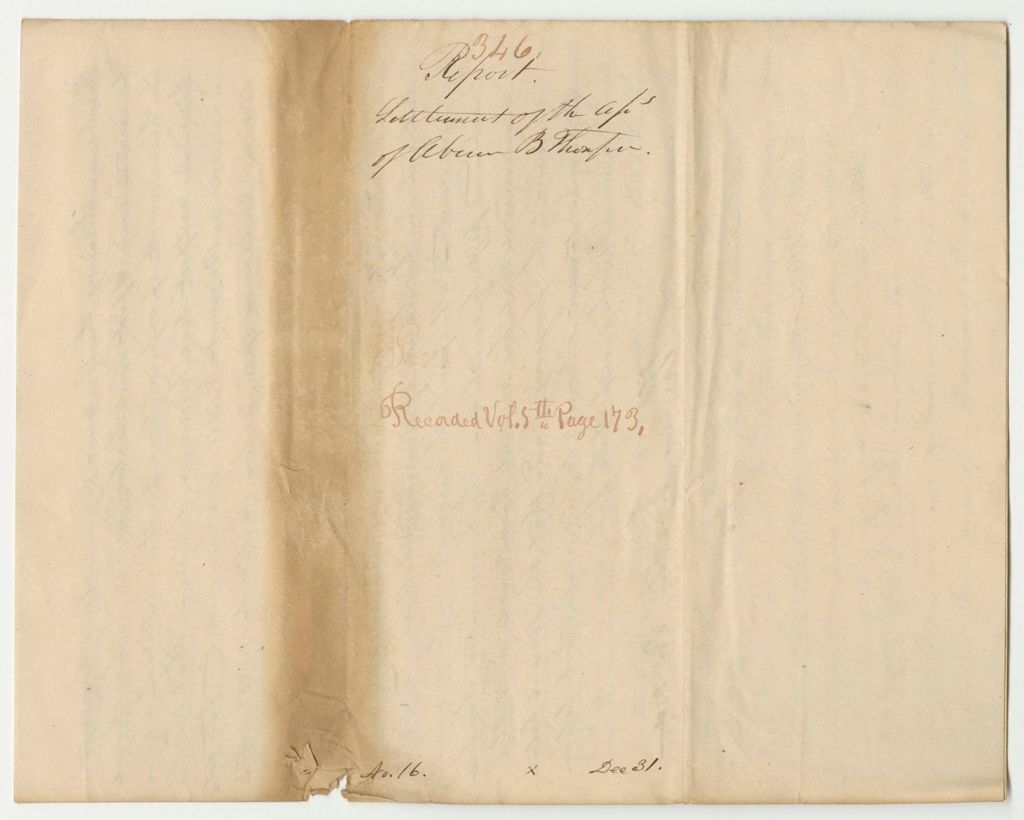 346.
Report.
Settlement of the a/cs
of Abner B Thompson.
Recorded Vol. 5th Page 173,
No. 16. x Dec 31.